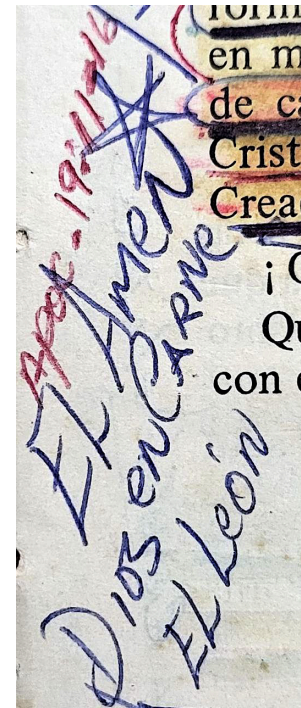 en m
de ca
Crist
Crea
¡ C
Qu
con
APOC. 19:11-16
EL AMEN
DIOS en CARNE
EL LEÓN